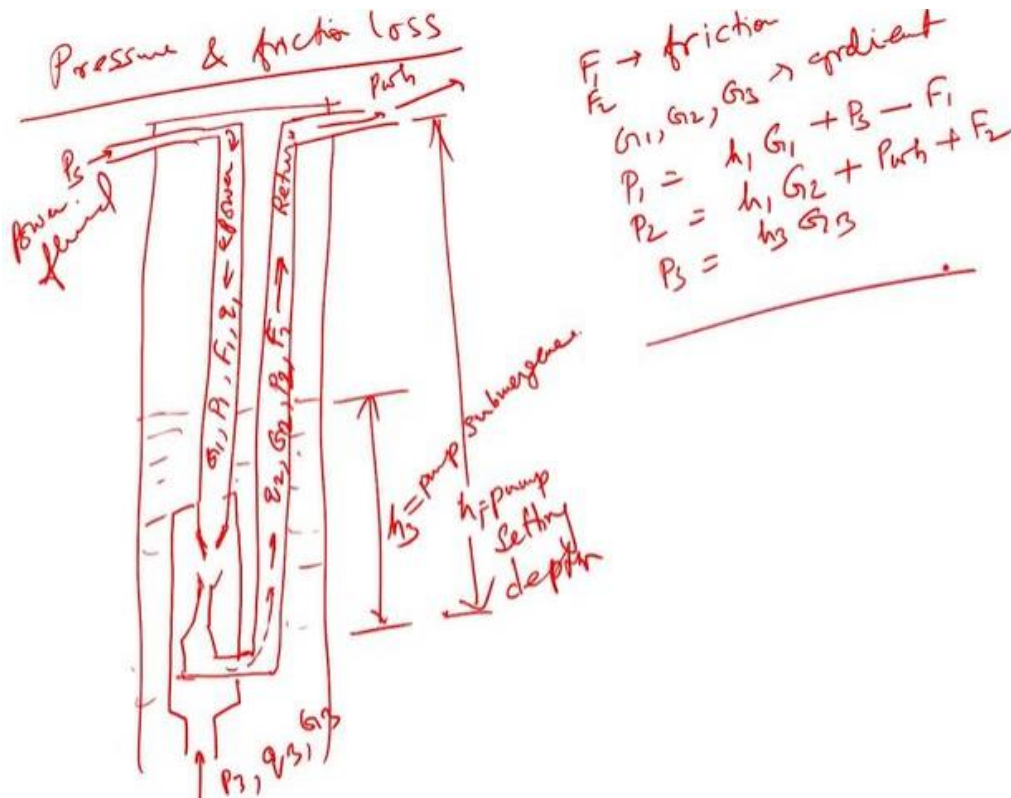 Pressure & friction loss
Pwh
Ps
Power
fluid
G1, P1, F1, q1 ← ← power
q2, G2, P2, F2 → Return
h3 = pump submergence
h1 = pump
setting
depth
P3, q3, G3
F1 → friction
F2
G1, G2, G3 → grdient
P1 = h1 G1 + Ps - F1
P2 = h1 G2 + Pwh + F2
P3 = h3 G3